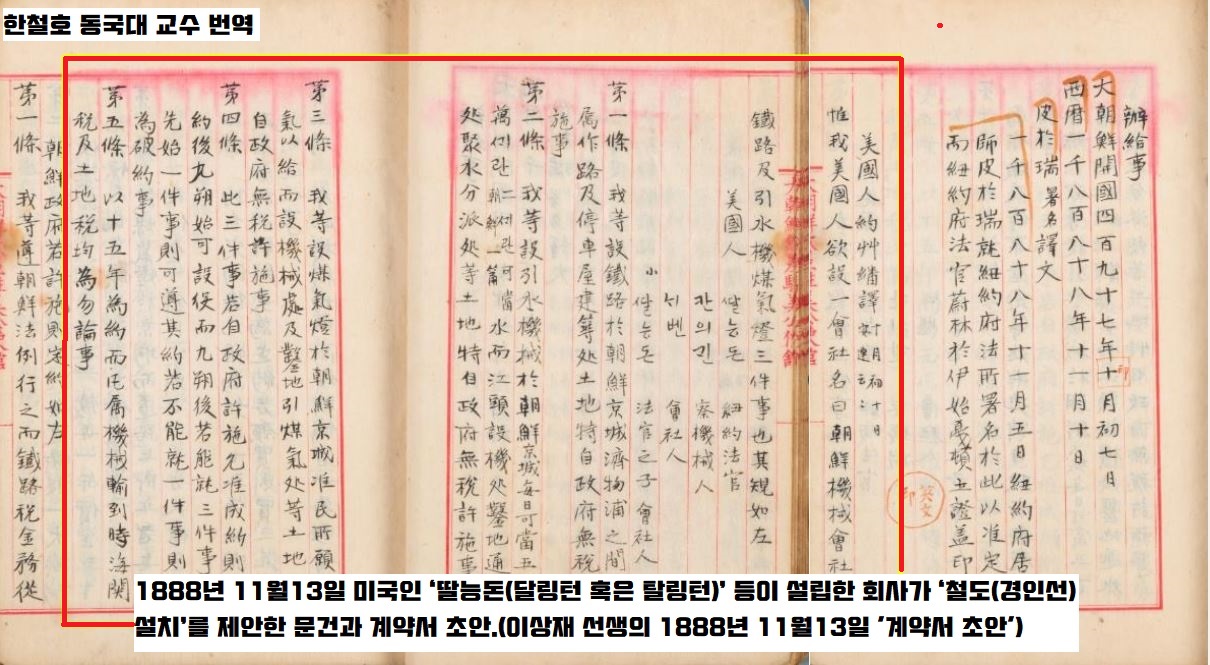 한철호 동국대 교수 번역
辦給事
大朝鮮開國四百九十七年十月初七日
西曆一千八百八十八年十一月十日
皮於瑞署名譯文
一千八百八十八年十一月五日紐約府居
師皮於瑞就紐約府法所署名於此以准定
而紐約府法官蔚林於伊始 證盖印
英文印
美國人約艸繙譯
惟我美國人欲設一會社名曰朝鮮機械會社
鐵路及引水機煤氣燈三件事也其規如左
美國人 딸능돈 紐約法官
칸의긘 察機械人
늬벤 會社人
小 딸능돈 法官之子 會社人
第一條 我等設鐵路於朝鮮京城濟物浦之間
属作路及停車屋建 处土地特自政府無税
施事
第二條 我等設引水機械於朝鮮京城每日可當五
萬 水而江頭設機处鑿地通
处聚水分派处等土地特自政府無税許施事
第三條 我等設煤氣燈於朝鮮京城准民所願
氣以給而設機械處及鑿地引煤氣处等土地
自政府無税許施事
第四條 此三件事若自政府許施允准成約則
約後九朔始可設俟而九朔後若能就三件事
先始一件事則可遵其約若不能就一件事則
為破約事
第五條 以十五年為約而凡属機械輸到時海関
税及土地税均為勿論事
朝鮮政府若許施則定約如左
第一條 我等遵朝鮮法例行之而鐵路税金務從
1888년 11월13일 미국인 ‘딸능돈(달링턴 혹은 탈링턴)’ 등이 설립한 회사가 ‘철도(경인선)
설치’를 제안한 문건과 계약서 초안.(이상재 선생의 1888년 11월13일 ’계약서 초안’)